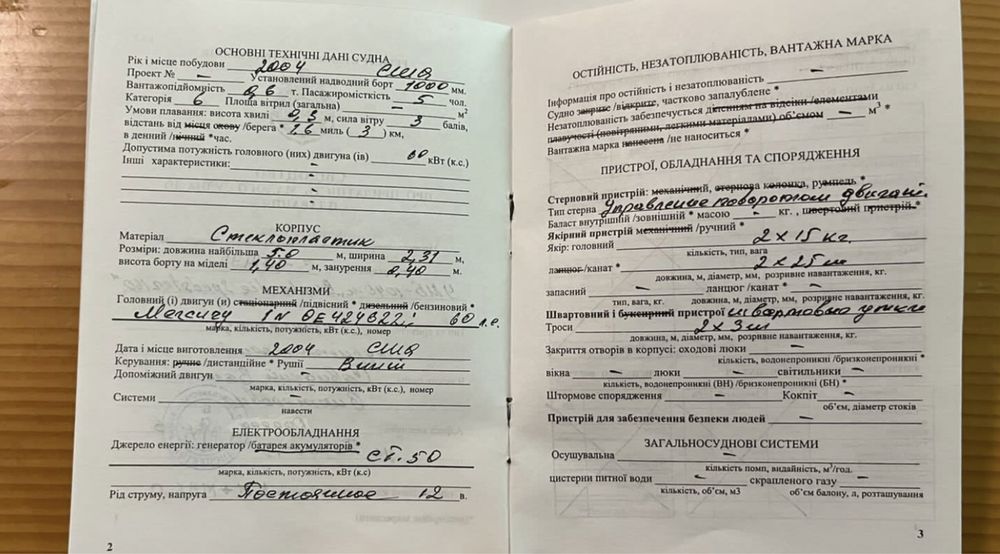 ОСНОВНІ ТЕХНІЧНІ ДАНІ СУДНА
Рік і місце побудови 2004 США
Проект № – Установлений надводний борт 1000 мм.
Вантажопідйомність 0,6 т. Пасажиромісткість 5 чол.
Категорія 6 Площа вітрил (загальна) – м²
Умови плавання: висота хвилі 0,3 м, сила вітру 3 балів,
відстань від місця схову /берега * 1.6 миль ( 3 ) км,
в денний /нічний *час.
Допустима потужність головного (них) двигуна (ів) 60 кВт (к.с.)
Інші характеристики: –
КОРПУС
Матеріал Стеклопластик
Розміри: довжина найбільша 5.0 м, ширина 2,31 м,
висота борту на міделі 1,40 м, занурення 0,40 м.
МЕХАНІЗМИ
Головний (і) двигун (и) стаціонарний /підвісний * дизельний /бензиновий *
Mercury 1N OE424822; 60 л.с.
марка, кількість, потужність, кВт (к.с.), номер
Дата і місце виготовлення 2004 США
Керування: ручне /дистанційне * Рушії Винт
Допоміжний двигун –
марка, кількість, потужність, кВт (к.с.), номер
Системи –
навести
ЕЛЕКТРООБЛАДНАННЯ
Джерело енергії: генератор /батарея акумуляторів *
СТ. 50
марка, кількість, потужність, кВт (к.с)
Рід струму, напруга Постоянное 12 в.
2
ОСТІЙНІСТЬ, НЕЗАТОПЛЮВАНІСТЬ, ВАНТАЖНА МАРКА
Інформація про остійність і незатоплюваність –
Судно закрите /відкрите, частково запалублене *
Незатоплюваність забезпечується діленням на відсіки /елементами
плавучості (повітряними, легкими матеріалами) об'ємом – м³ *
Вантажна марка нанесена /не наноситься *
ПРИСТРОЇ, ОБЛАДНАННЯ ТА СПОРЯДЖЕННЯ
Стерновий пристрій: механічний, стернова колонка, румпель *
Тип стерна Управление поворотом двигат.
Баласт внутрішній /зовнішній * масою – кг. , швартовий пристрій *
Якірний пристрій механічний /ручний *
Якір: головний 2 x 15 кг.
кількість, тип, вага
ланцюг /канат * 2 x 25 м
довжина, м, діаметр, мм, розривне навантаження, кг.
запасний – ланцюг /канат * –
тип, вага, кг. довжина, м, діаметр, мм, розривне навантаження, кг.
Швартовний і буксирний пристрої швартовые утки
Троси 2 x 3 м
довжина, м, діаметр, мм, розривне навантаження, кг.
Закриття отворів в корпусі: сходові люки –
кількість, водонепроникні /бризконепроникні *
вікна – люки – світильники –
кількість, водонепроникні (ВН) /бризконепроникні (БН) *
Штормове спорядження – Кокпіт –
об'єм, діаметр стоків
Пристрій для забезпечення безпеки людей –
ЗАГАЛЬНОСУДНОВІ СИСТЕМИ
Осушувальна –
кількість помп, видайність, м³/год.
цистерни питної води – скрапленого газу –
кількість, об'єм, м3 об'єм балону, л, розташування
3